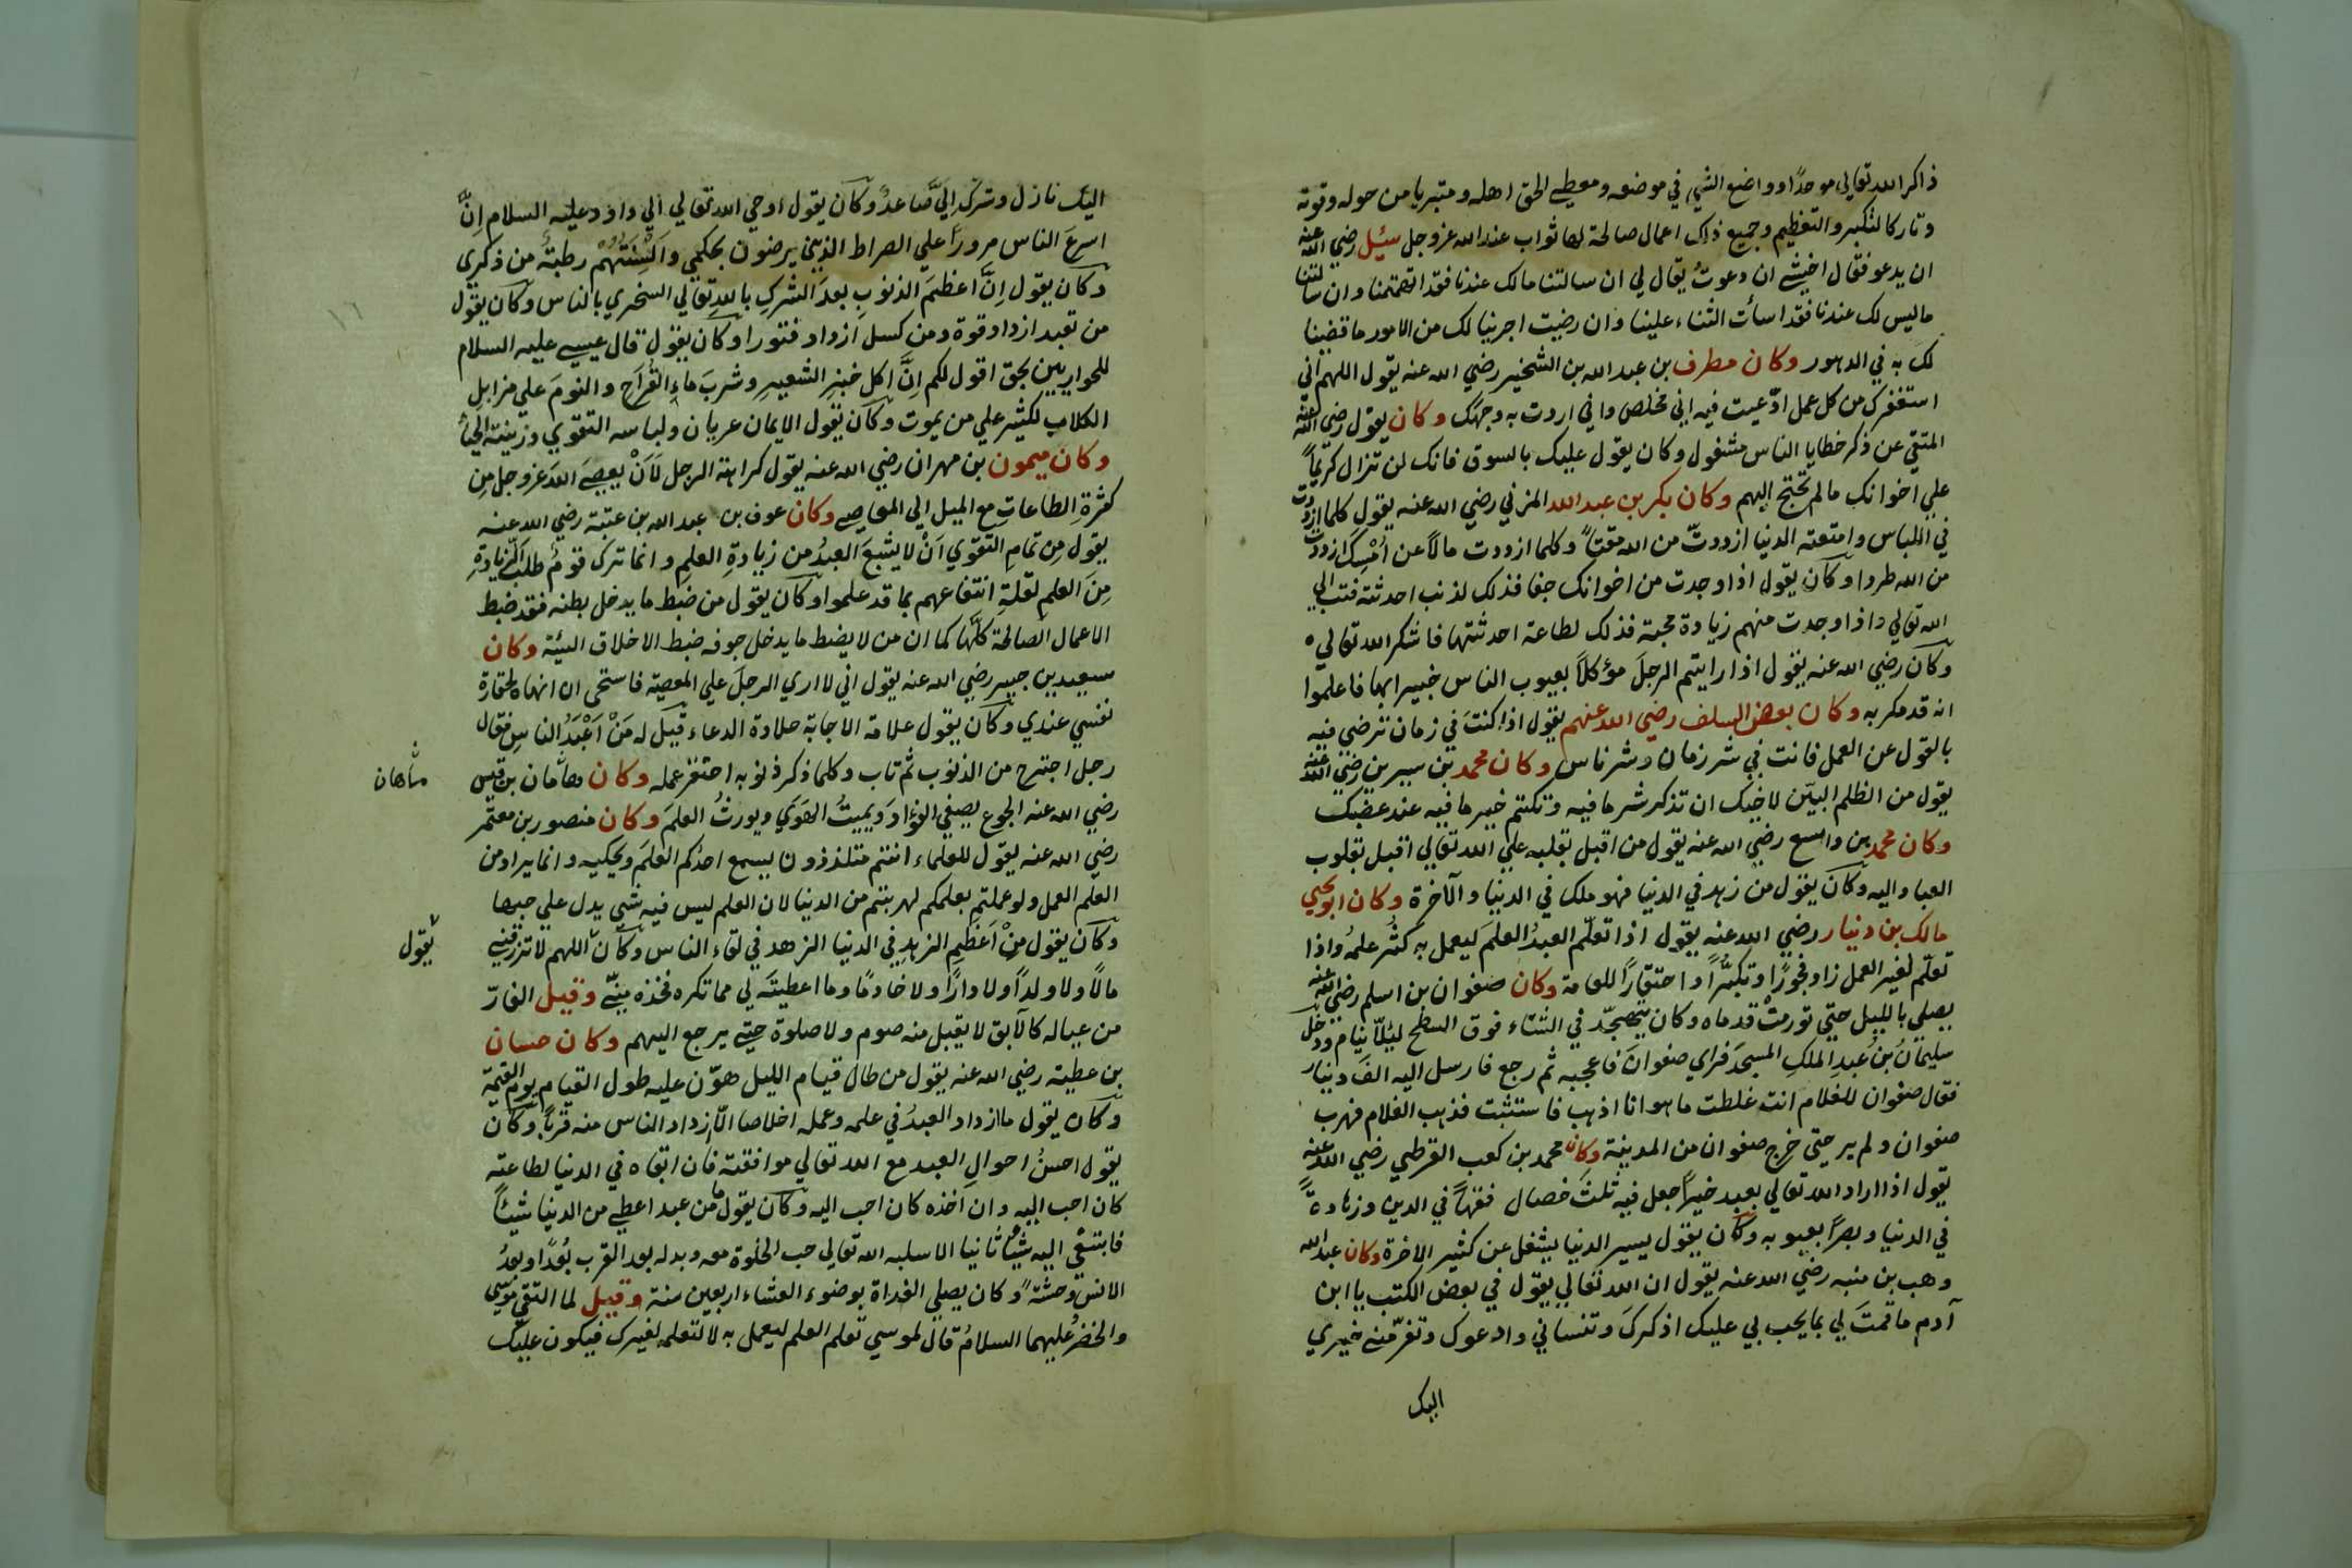 ذاكرا لله تعالي موحدًا وواضع الشي في موضعه ومعطي الحق اهله ومتبريا من حوله وقوته
وتاركا لتكبر والتعظيم وجميع ذلك اعمال صالحة لها ثواب عند الله عز وجل سئل رضي الله عنه
ان يدعو فقال اخشي ان دعوتُ يقال لي ان سالتنا مالك عندنا فقد اتهمتنا وان سالتنا
ماليس لك عندنا فقد اسأت الثناء علينا وان رضيت اجرينا لك من الامور ما قضينا
لك به في الدهور وكان مطرف بن عبد الله بن الشخير رضي الله عنه يقول اللهم اني
استغفرك من كل عمل ادّعيت فيه اني مخلص واني اردت به وجهك وكان يقول رضي الله عنه
المتقي عن ذكر خطايا الناس مشغول وكان يقول عليك بالسوق فانك لن تزال كريمًا
علي اخوانك مالم تحتج اليهم وكان بكر بن عبد الله المزني رضي الله عنه يقول كلما ازددت
في اللباس وامتعته الدنيا ازددتّ من الله مقتًا وكلما ازددت مالاً عن امْسِكَ ازددت
من الله طردا وكان يقول اذا وجدت من اخوانك جفا فذلك لذنب احدثته فتب الي
الله تعالي واذا وجدت منهم زيادة محبة فذلك لطاعة احدثتها فاشكر الله تعالي ه
وكان رضي الله عنه يقول اذا رايتم الرجلَ مؤكلاً بعيوب الناس خبيرا بها فاعلموا
انه قد مكر به وكان بعض السلف رضي الله عنهم يقول اذا كنتَ في زمان ترضي فيه
بالقول عن العمل فانت في شر زمان وشر ناس وكان محمد بن سيرين رضي الله عنه
يقول من الظلم البيّن لاخيك ان تذكر شر ما فيه وتكتم خير ما فيه عند غضبك
وكان محمد بن واسع رضي الله عنه يقول من اقبل بقلبه علي الله تعالي اقبل بقلوب
العباد اليه وكان يقول من زهد في الدنيا فهو ملك في الدنيا والآخرة وكان ابو يحيي
مالك بن دينار رضي الله عنه يقول اذا تعلّم العبدُ العلمَ ليعمل به كثُر علمهُ واذا
تعلّم لغير العمل زاد فجورًا وتكبُّرًا واحتقارًا للعامة وكان صفوان بن اسلم رضي الله عنه
يصلي بالليل حتي تورمتْ قدماه وكان يتهجّد في الشتاء فوق السطح ليئلّا ينام ودخل
سليمانُ بنُ عبدِ الملكِ المسجدَ فراي صفوانَ فاعجبه ثم رجع فارسل اليه الفَ دينار
فقال صفوان للغلام انت غلطت ما هو انا اذهب فاستثبت فذهب الغلام فهرب
صفوان ولم ير حتي خرج صفوان من المدينة وكان محمد بن كعب القرظي رضي الله عنه
يقول اذا اراد الله تعالي بعبد خيرًا جعل فيه ثلثَ خصال فقهًا في الدين وزهادةً
في الدنيا وبصرًا بعيوبه وكان يقول يسير الدنيا يشغل عن كثير الاخرة وكان عبد الله
وهب بن منبه رضي الله عنه يقول ان الله تعالي يقول في بعض الكتب يا ابن
آدم ما قمتَ لي بما يحب لي عليك اذكركَ وتنساني وادعوك وتفرّمني خيري
اليك
اليك نازل وشرك اليَّ صاعدٌ وكان يقول اوحي الله تعالي الي داود عليه السلام اِنَّ
اسرعَ الناس مرورًا علي الصراط الذين يرضون بحكمي وَاَلْسِنَتُهُمْ رطبةٌ من ذكري
وكان يقول اِنَّ اعظمَ الذنوبِ بعدَ الشركِ باللهِ تعالي السخري بالناس وكان يقول
من تعبد ازداد قوة ومن كسل ازداد فتورا وكان يقول قال عيسي عليه السلام
للحواريين بحق اقول لكم اِنَّ اكل خبزِ الشعيرِ وشربَ ماءِ القَراحِ والنومَ علي مزابلِ
الكلابِ لكثير علي من يموت وكان يقول الايمان عريان ولباسه التقوي وزينته الحياءُ
وكان ميمون بن مهران رضي الله عنه يقول كراهة الرجل لَاَنْ يعصيَ اللهَ عز وجل مِن
كثرةِ الطاعاتِ مع الميل الي المعاصي وكان عوف بن عبد الله بن عتبة رضي الله عنه
يقول مِن تمامِ التقوي اَنْ لا يشبعَ العبدُ من زيادةِ العلمِ وانما ترك قومٌ طلبَ الزيادةِ
مِنَ العلمِ لقلةِ انتفاعهم بما قد علموا وكان يقول من ضبط ما يدخل بطنه فقد ضبط
الاعمال الصالحة كلّها كما ان من لا يضبط ما يدخل جوفه ضبط الاخلاق السيئة وكان
سعيد بن جبير رضي الله عنه يقول اني لا اري الرجلَ علي المعصية فاستحي ان انهاه لحقارة
نفسي عندي وكان يقول علامة الاجابة حلاوة الدعاء قيل له مَنْ اَعْبَدُ الناسِ فقال
رجل اجترح من الذنوب ثم تاب وكلما ذكر ذنوبه احتقر عمله وكان ماهان بن قيس
ماهان
رضي الله عنه الجوع يصفي الفؤادَ ويميتُ الهَويَ ويورثُ العلمَ وكان منصور بن معتّمر
رضي الله عنه يقول للعلماء انتم متلذذون يسمع احدُكم العلمَ ويحكيه وانما يراد من
العلم العمل ولو عملتم بعلمكم لهربتم من الدنيا لان العلم ليس فيه شي يدل علي حبها
وكان يقول مِنْ اَعْظمِ الزهدِ في الدنيا الزهد في لقاء الناس وكان اللهم لا ترزقني
يقول
مالاً ولا ولداً ولا دارًا ولا خادمًا وما اعطيتَه لي مما تكره فخذه منّي وقيل الفارّ
من عياله كالآبق لا يقبل منه صوم ولا صلوة حتي يرجع اليهم وكان حسان
بن عطية رضي الله عنه يقول من طال قيام الليل هوّن عليه طول القيام يوم القيمة
وكان يقول ما ازداد العبدُ في علمه وعمله اخلاصا الّا ازداد الناس منه قربًا وكان
يقول احسنُ احوالِ العبد مع الله تعالي موافقته فان ابقاه في الدنيا لطاعته
كان احب اليه وان اخذه كان احب اليه وكان يقول ما من عبد اعطي من الدنيا شيئًا
فابتغي اليه شيئًا ثانيا الا سلبه الله تعالي حب الخلوة معه وبدله بعد القرب بُعدًا وبعدُ
الانس وحشةً وكان يصلي الغداة بوضوء العشاء اربعين سنة وقيل لما التقي موسي
والخضرُ عليهما السلامُ قال لموسي تعلم العلم ليعمل به لا لتعلمه لغيرك فيكون عليك